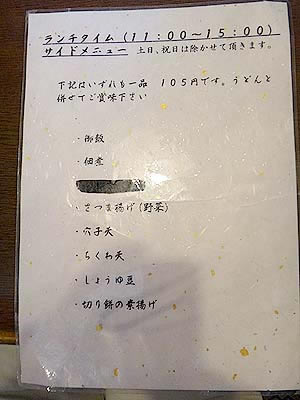 ランチタイム(11:00〜15:00)
サイドメニュー 土日、祝日は除かせて頂きます。
下記はいずれも一品 105円です。うどんと
併せてご賞味下さい
・
・御飯
・佃煮
・さつま揚げ(野菜)
・穴子天
・ちくわ天
・しょうゆ豆
・切り餅の素揚げ